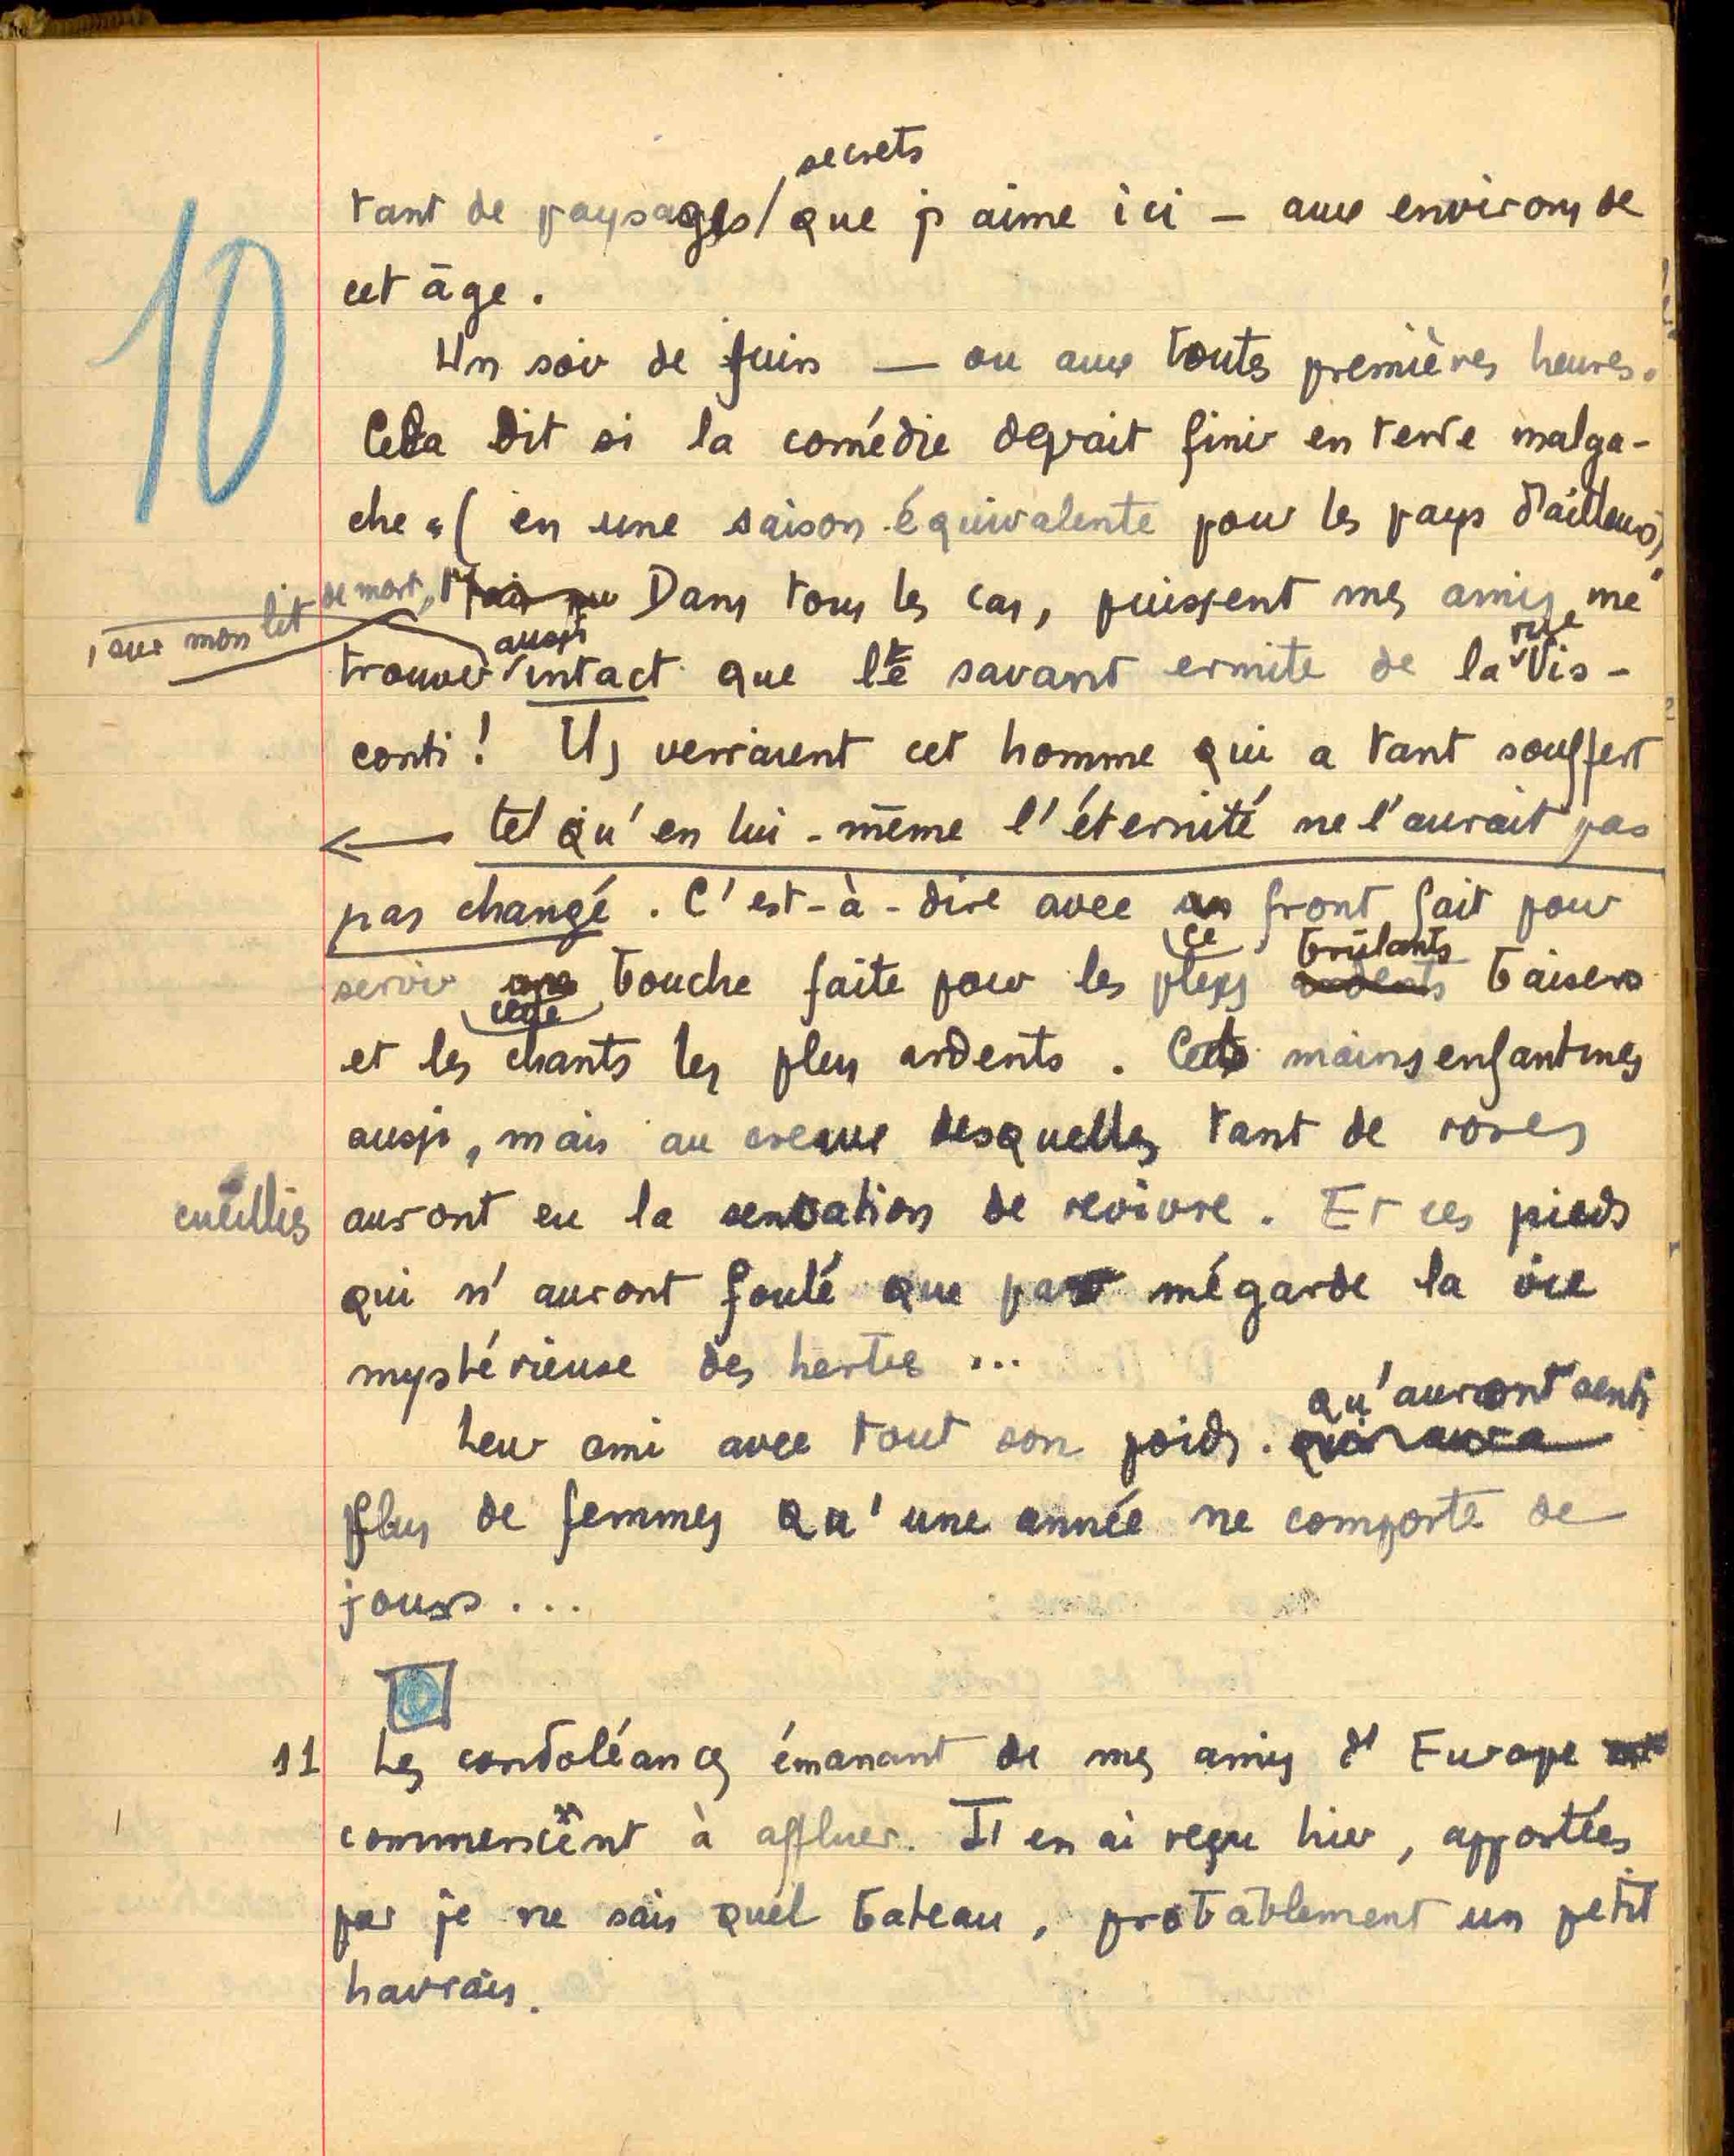 10
secrets
tant de paysages / que j'aime ici — aux environs de
cet âge.
Un soir de juin — ou aux toutes premières heures.
Cela dit si la comédie devait finir en terre malga-
che. (en une saison équivalente pour les pays d'ailleurs).
, sur mon lit de mort,
Dans tous les cas, puissent mes amis me
aussi
rue
trouver intact que le savant ermite de la Vis-
conti ! Ils verraient cet homme qui a tant souffert
tel qu'en lui-même l'éternité ne l'aurait pas
pas changé. C'est-à-dire avec un front fait pour
ce
brûlants
servir une bouche faite pour les plus ardents baisers
cette
et les chants les plus ardents. Ces mains enfantines
aussi, mais au creux desquelles tant de roses
cueillies
auront eu la sensation de revivre. Et ces pieds
qui n'auront foulé que par mégarde la vie
mystérieuse des herbes ...
qu'auront senti
Leur ami avec tout son poids. qui aura
plus de femmes qu'une année ne comporte de
jours ...
11 Les condoléances émanant de mes amis d'Europe
commencent à affluer. J'en ai reçu hier, apportées
par je ne sais quel bateau, probablement un petit
havrais.